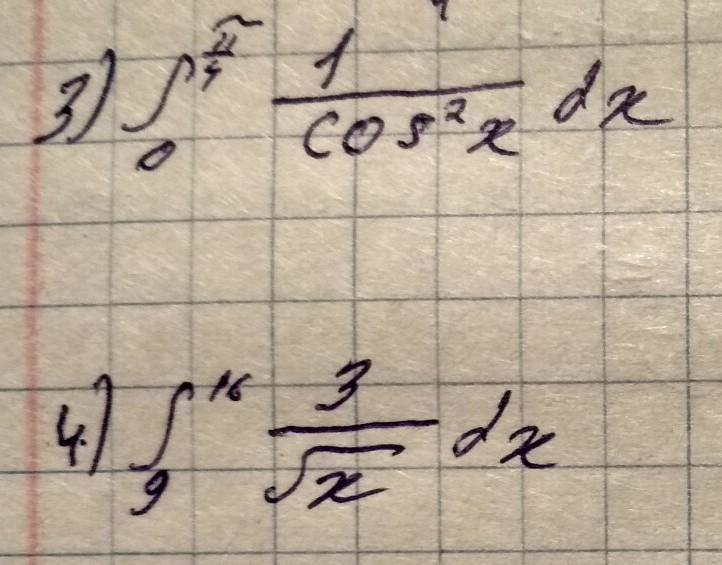 3) ∫₀^(π/4) 1/(cos²x) dx
4.) ∫₉^16 3/√x dx